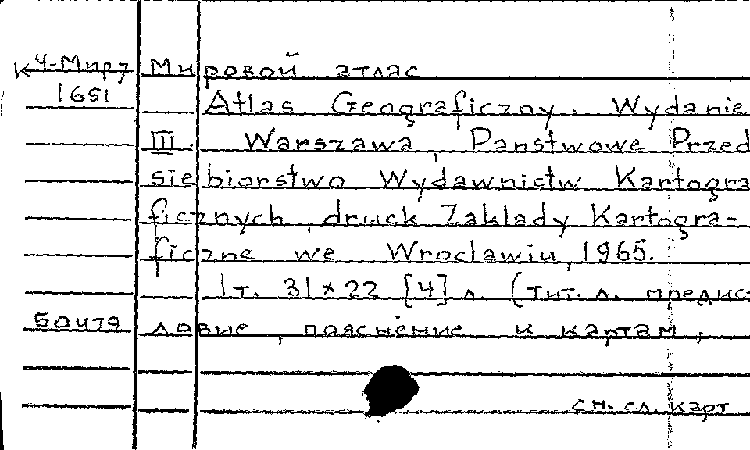 К 4-Мир7 Мировой атлас
1651 Atlas Geograficzny. Wydanie
III Warszawa, Panstwowe Przed
siebiorstwo Wydawnictw Kartogra
ficznych, druck Zaklady Kartogra-
ficzne we Wroclawiu, 1965.
1т. 31×22 [4] л. (тит. л. предис
Б01479 ловие, пояснение к картам,
см. сл. карт